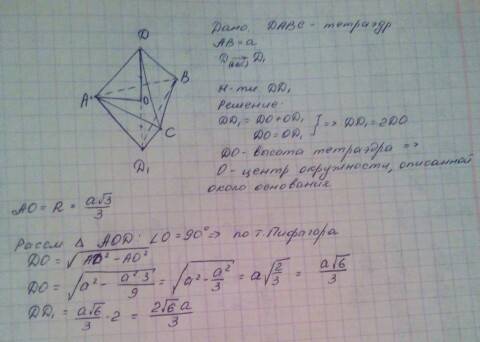 D
A
B
O
C
D₁
Дано: DABC - тетраэдр
AB = a
D (ABC) → D₁
Н-ти: DD₁
Решение:
DD₁ = DO + OD₁
DO = OD₁ } => DD₁ = 2DO
DO - высота тетраэдра =>
O - центр окружности, описанной
около основания.
AO = R = a√3/3
Рассм Δ AOD: ∠O = 90° => по т. Пифагора
DO = √(AD² - AO²)
DO = √(a² - a²3/9) = √(a² - a²/3) = a√(2/3) = a√6/3
DD₁ = a√6/3 · 2 = 2√6a/3